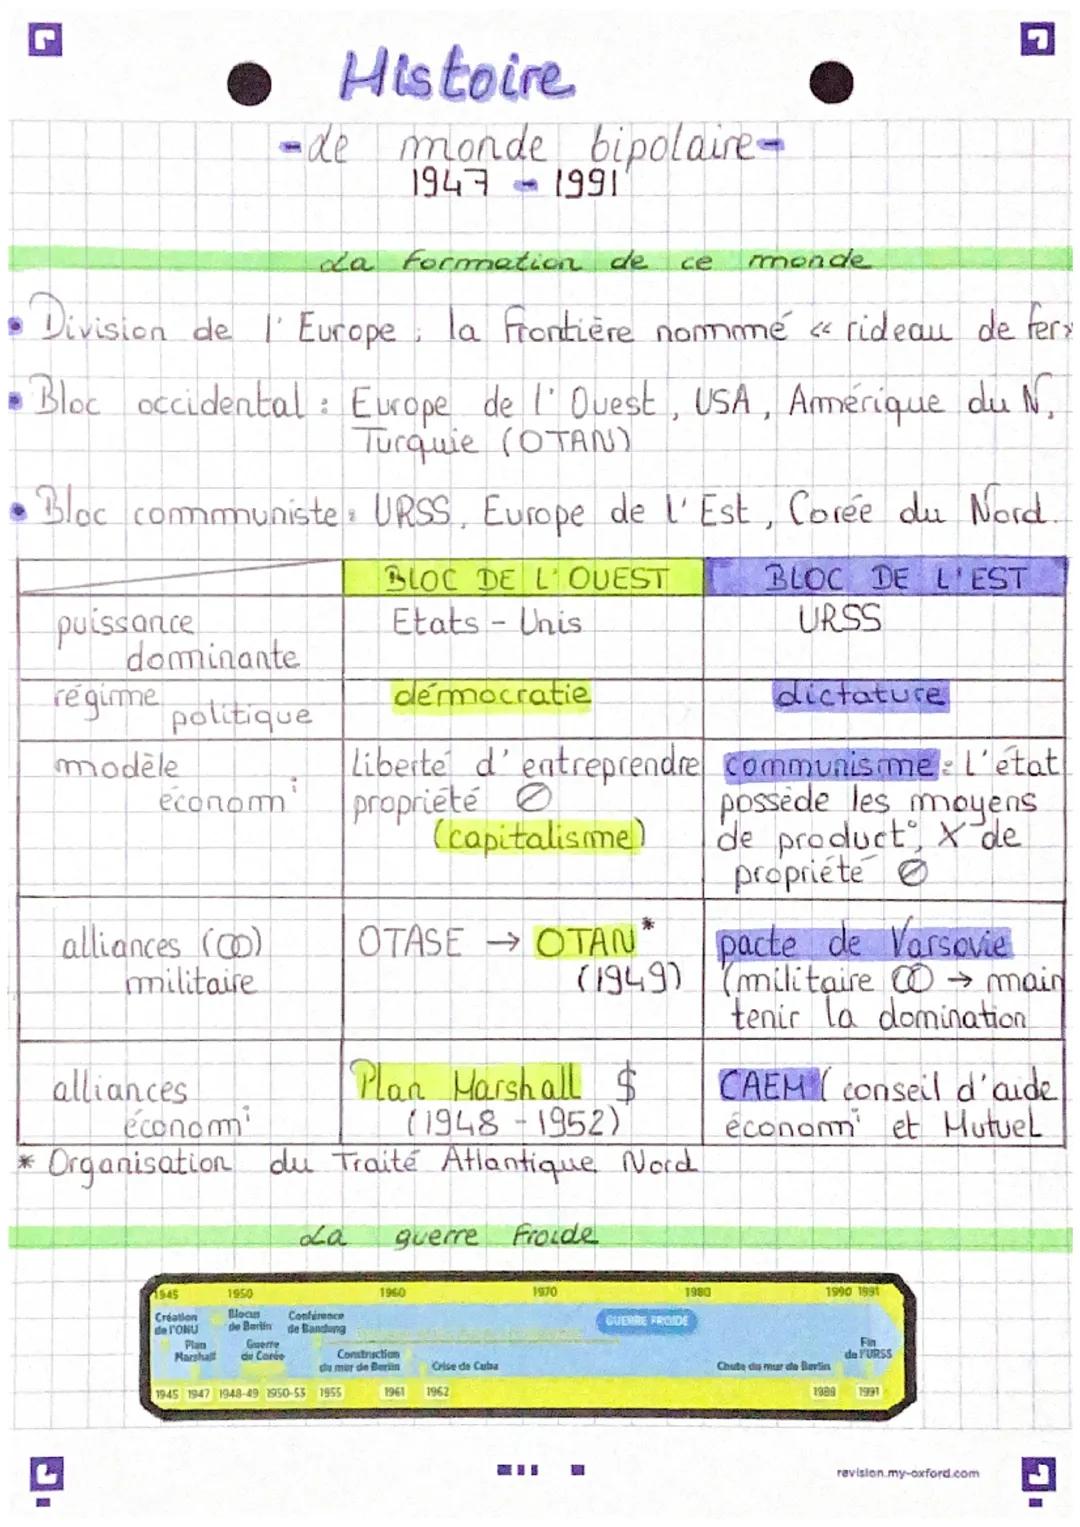 Histoire
- Le monde bipolaire -
1947 - 1991
La formation de ce monde
• Division de l'Europe ; la frontière nommmé « rideau de fer»
• Bloc occidental : Europe de l'Ouest, USA, Amérique du N,
Turquie (OTAN)
• Bloc communiste : URSS, Europe de l'Est, Corée du Nord.
BLOC DE L'OUEST BLOC DE L'EST
puissance Etats-Unis URSS
dominante
régime démocratie dictature
politique
modèle liberté d'entreprendre communisme : L'état
économi propriété possède les moyens
(capitalisme) de product°, X de
propriété
alliances (∞) OTASE → OTAN* pacte de Varsovie
militaire (1949) (militaire ∞ → main
tenir la domination
alliances Plan Marshall $ CAEM ( conseil d'aide
économi (1948 - 1952) économi et Mutuel
* Organisation du Traité Atlantique Nord
La guerre Froide
1945 1950 1960 1970 1980 1990 1991
Création Blocus Conférence GUERRE FROIDE
de l'ONU de Berlin de Bandung
Plan Guerre Fin
Marshall de Corée Construction de l'URSS
du mur de Berlin Crise de Cuba Chute du mur de Berlin
1945 1947 1948-49 1950-53 1955 1961 1962 1989 1991
revision.my-oxford.com